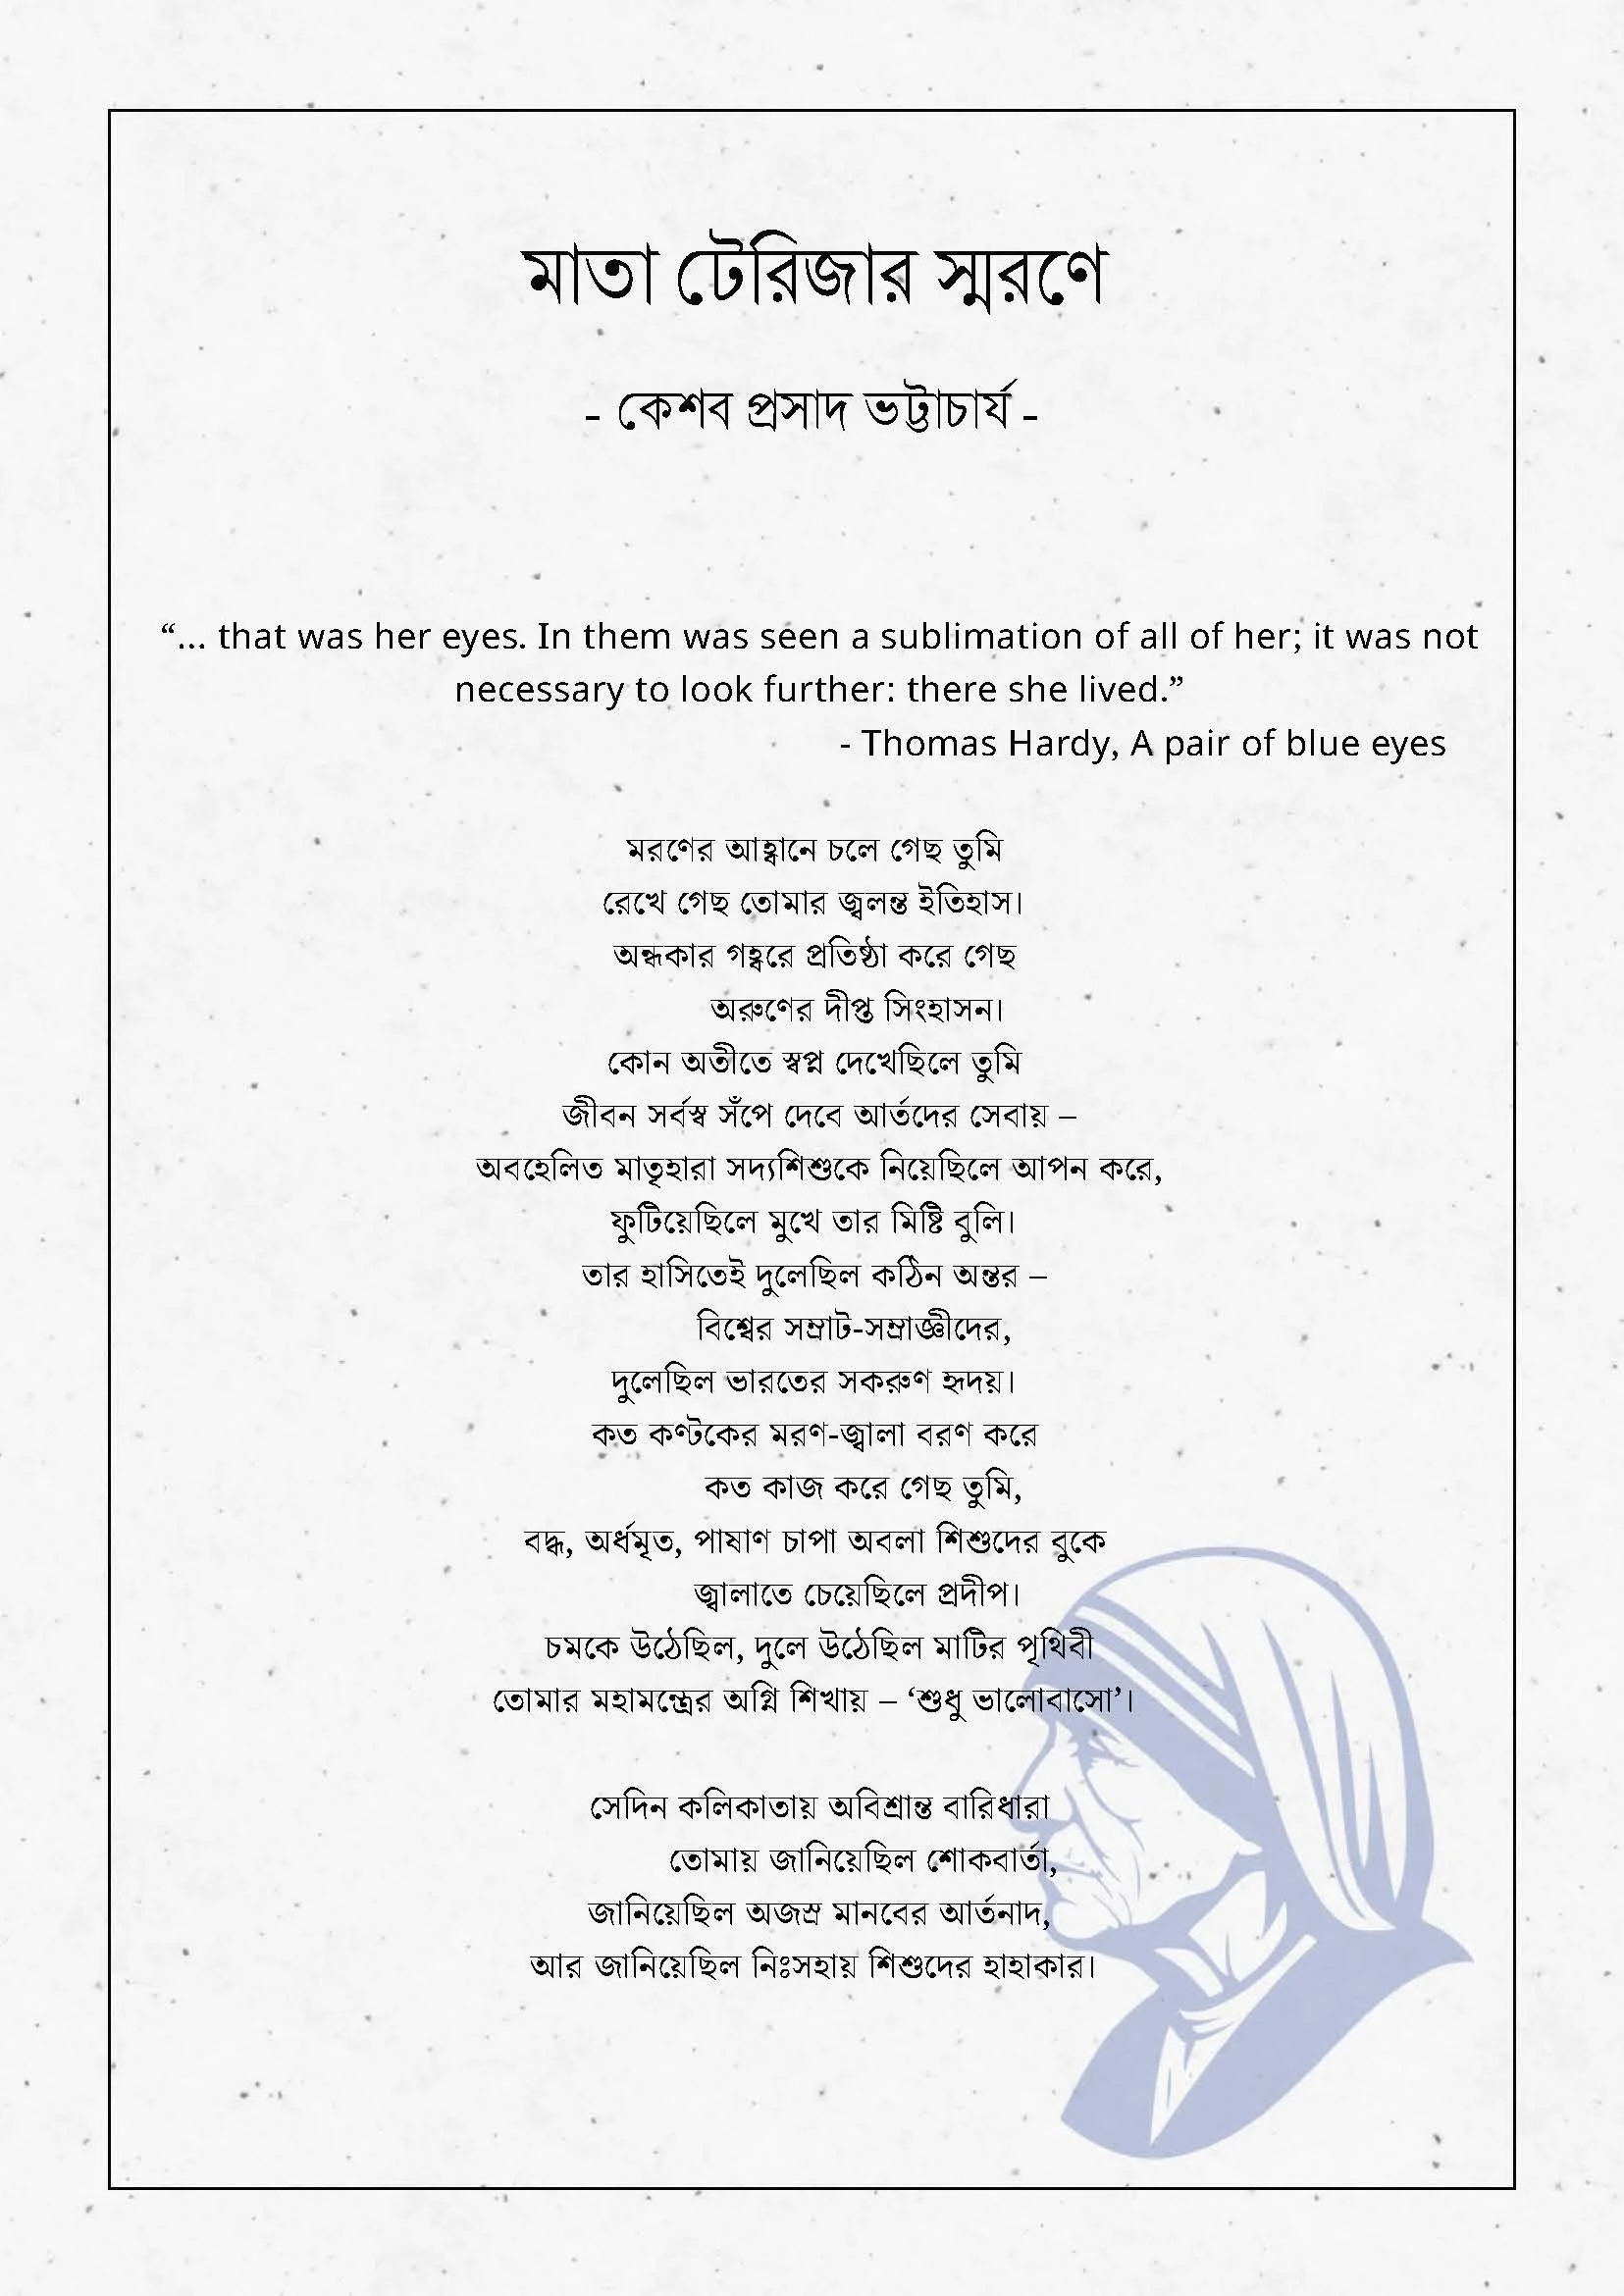 মাতা টেরিজার স্মরণে
- কেশব প্রসাদ ভট্টাচার্য -
“... that was her eyes. In them was seen a sublimation of all of her; it was not
necessary to look further: there she lived.”
- Thomas Hardy, A pair of blue eyes
মরণের আহ্বানে চলে গেছ তুমি
রেখে গেছ তোমার জ্বলন্ত ইতিহাস।
অন্ধকার গহ্বরে প্রতিষ্ঠা করে গেছ
অরুণের দীপ্ত সিংহাসন।
কোন অতীতে স্বপ্ন দেখেছিলে তুমি
জীবন সর্বস্ব সঁপে দেবে আর্তদের সেবায় –
অবহেলিত মাতৃহারা সদ্যশিশুকে নিয়েছিলে আপন করে,
ফুটিয়েছিলে মুখে তার মিষ্টি বুলি।
তার হাসিতেই দুলেছিল কঠিন অন্তর –
বিশ্বের সম্রাট-সম্রাজ্ঞীদের,
দুলেছিল ভারতের সকরুণ হৃদয়।
কত কণ্টকের মরণ-জ্বালা বরণ করে
কত কাজ করে গেছ তুমি,
বদ্ধ, অর্ধমৃত, পাষাণ চাপা অবলা শিশুদের বুকে
জ্বালাতে চেয়েছিলে প্রদীপ।
চমকে উঠেছিল, দুলে উঠেছিল মাটির পৃথিবী
তোমার মহামন্ত্রের অগ্নি শিখায় – ‘শুধু ভালোবাসো’।
সেদিন কলিকাতায় অবিশ্রান্ত বারিধারা
তোমায় জানিয়েছিল শোকবার্তা,
জানিয়েছিল অজস্র মানবের আর্তনাদ,
আর জানিয়েছিল নিঃসহায় শিশুদের হাহাকার।